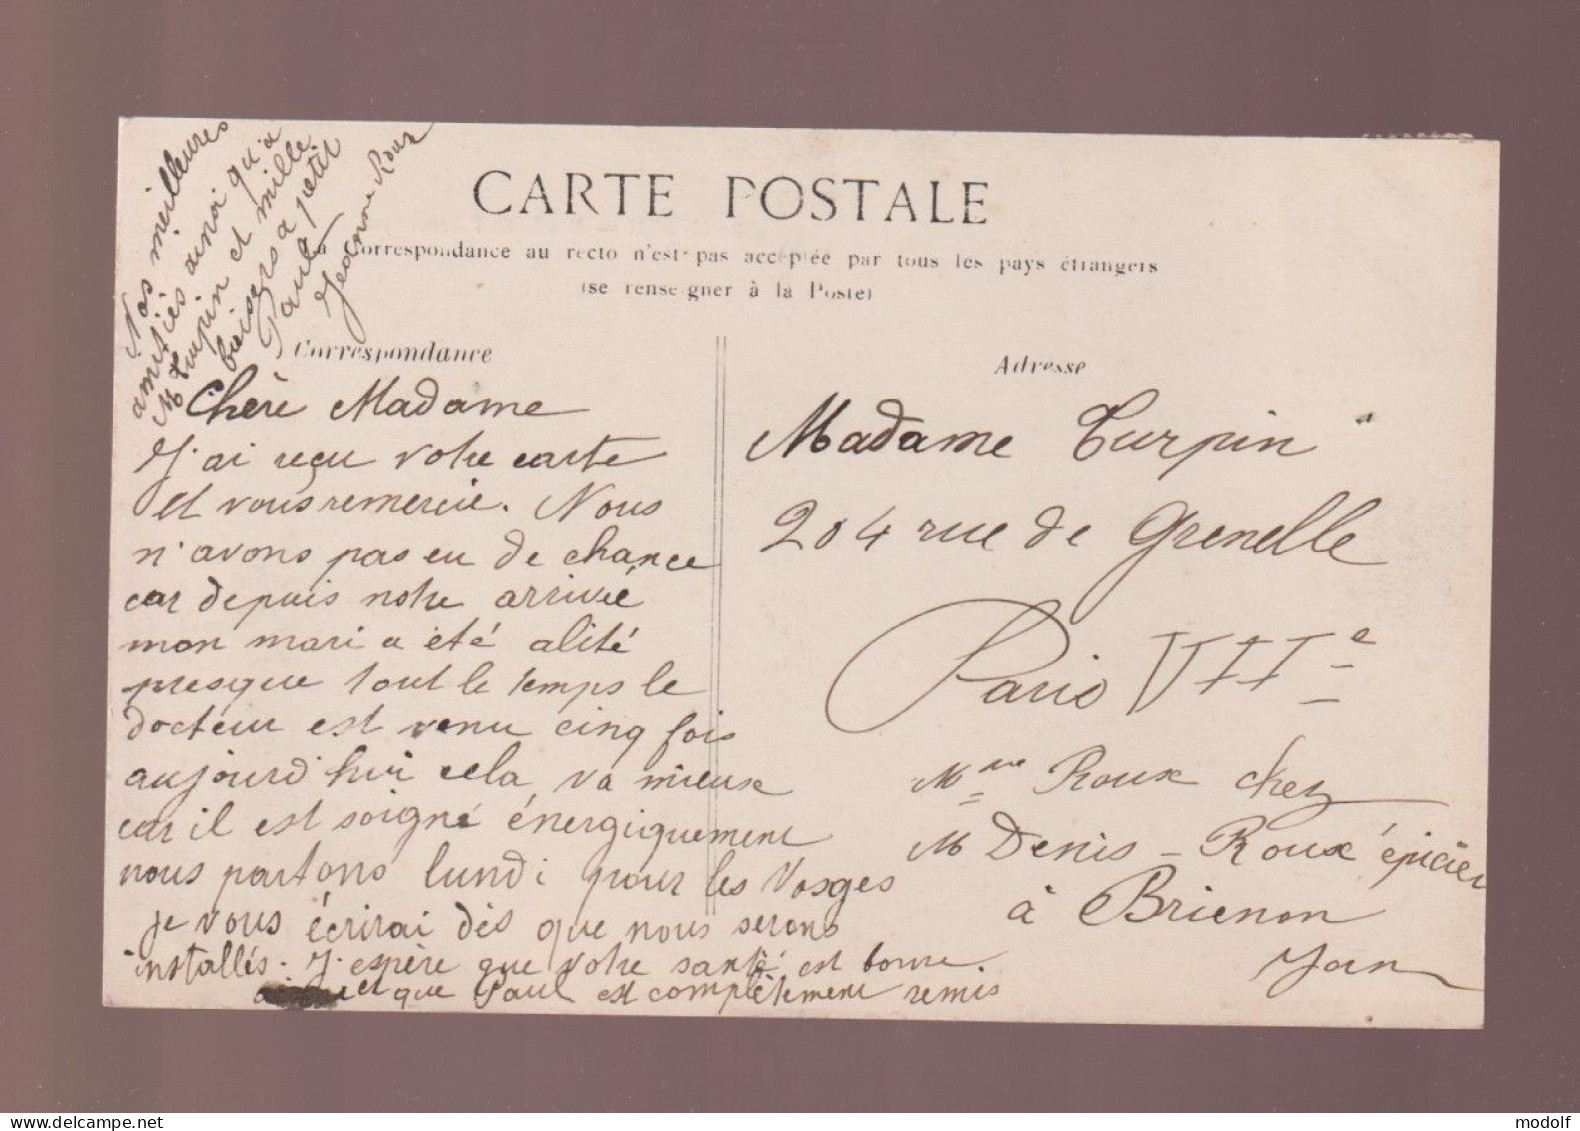 CARTE POSTALE
La Correspondance au recto n'est pas acceptée par tous les pays étrangers
(se renseigner à la Poste)
Correspondance
Chère Madame
J'ai reçu votre carte
et vous remercie. Nous
n'avons pas eu de chance
car depuis notre arrivée
mon mari a été alité
presque tout le temps le
docteur est venu cinq fois
aujourd'hui cela va mieux
car il est soigné énergiquement
nous partons lundi pour les Vosges
je vous écrirai dès que nous serons
installés. J'espère que votre santé est bonne.
et que Paul est complètement remis
Nos meilleures
amitiés ainsi qu'a
M Turpin et mille
baisers a petit
Paul
Jeanne Roux
Adresse
Madame Turpin
204 rue de Grenelle
Paris VIIe
Mme Roux chez
M Denis-Roux épicier
à Brienon
Yon
delcampe.net
modolf